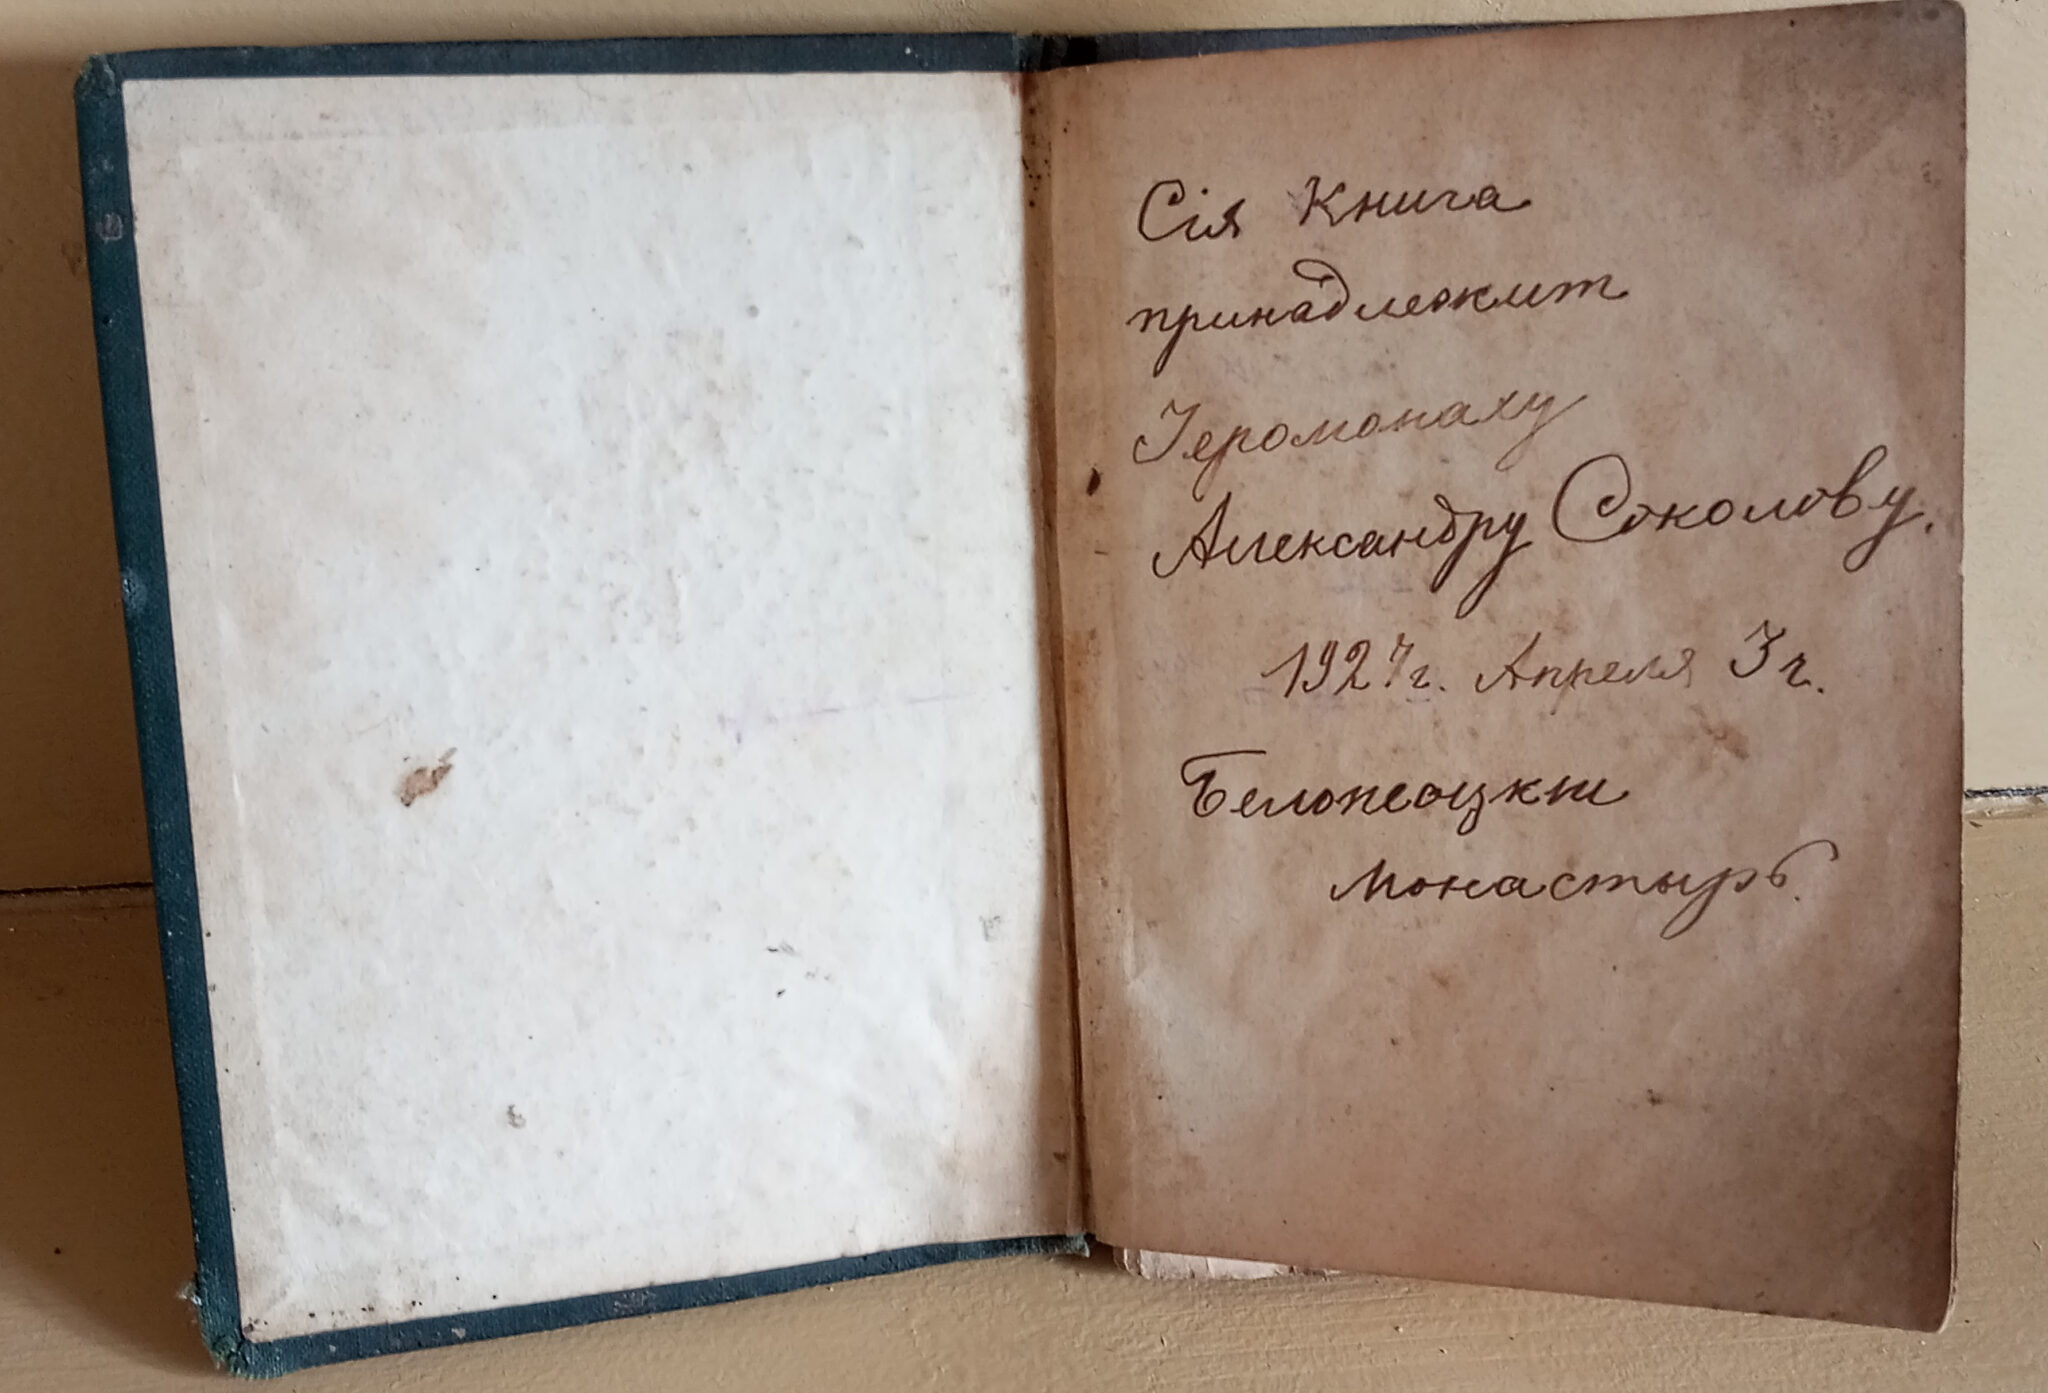 Сія Книга
принадлежит
Іеромонаху
Александру Соколову.
1927г. Апреля 3 ч.
монастырь.